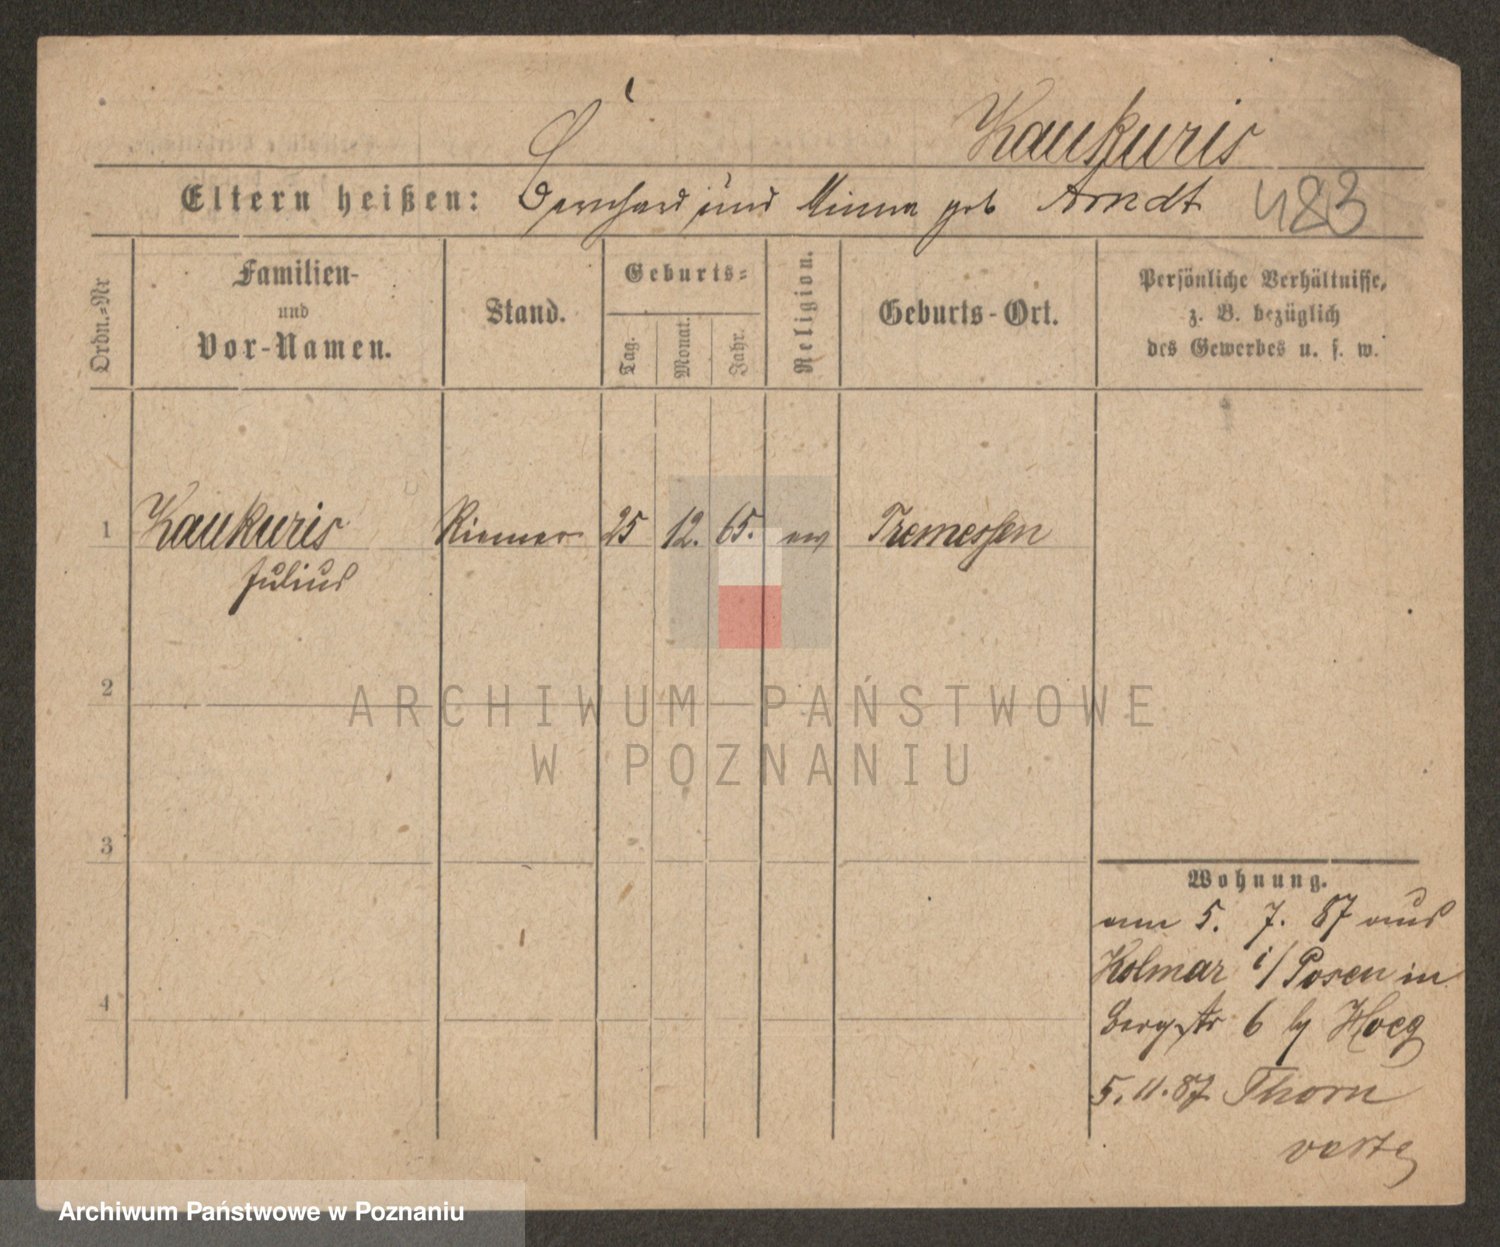 Kaukuris
Eltern heißen: Bernhard und Minna geb Arndt 483
Ordn.=Nr
Familien-
und
Vor-Namen.
Stand.
Geburts=
Tag.
Monat.
Jahr.
Religion.
Geburts-Ort.
Persönliche Verhältnisse,
z. B. bezüglich
des Gewerbes u. s. w.
1 Kaukuris Riemer 25 12. 65. ev Tremessen
Julius
2
3
4
Wohnung.
am 5. 7. 87 aus
Kolmar i/Posen in
Bergstr 6 by Hoeg
5. 11. 87 Thorn
verte
ARCHIWUM PAŃSTWOWE
W POZNANIU
Archiwum Państwowe w Poznaniu